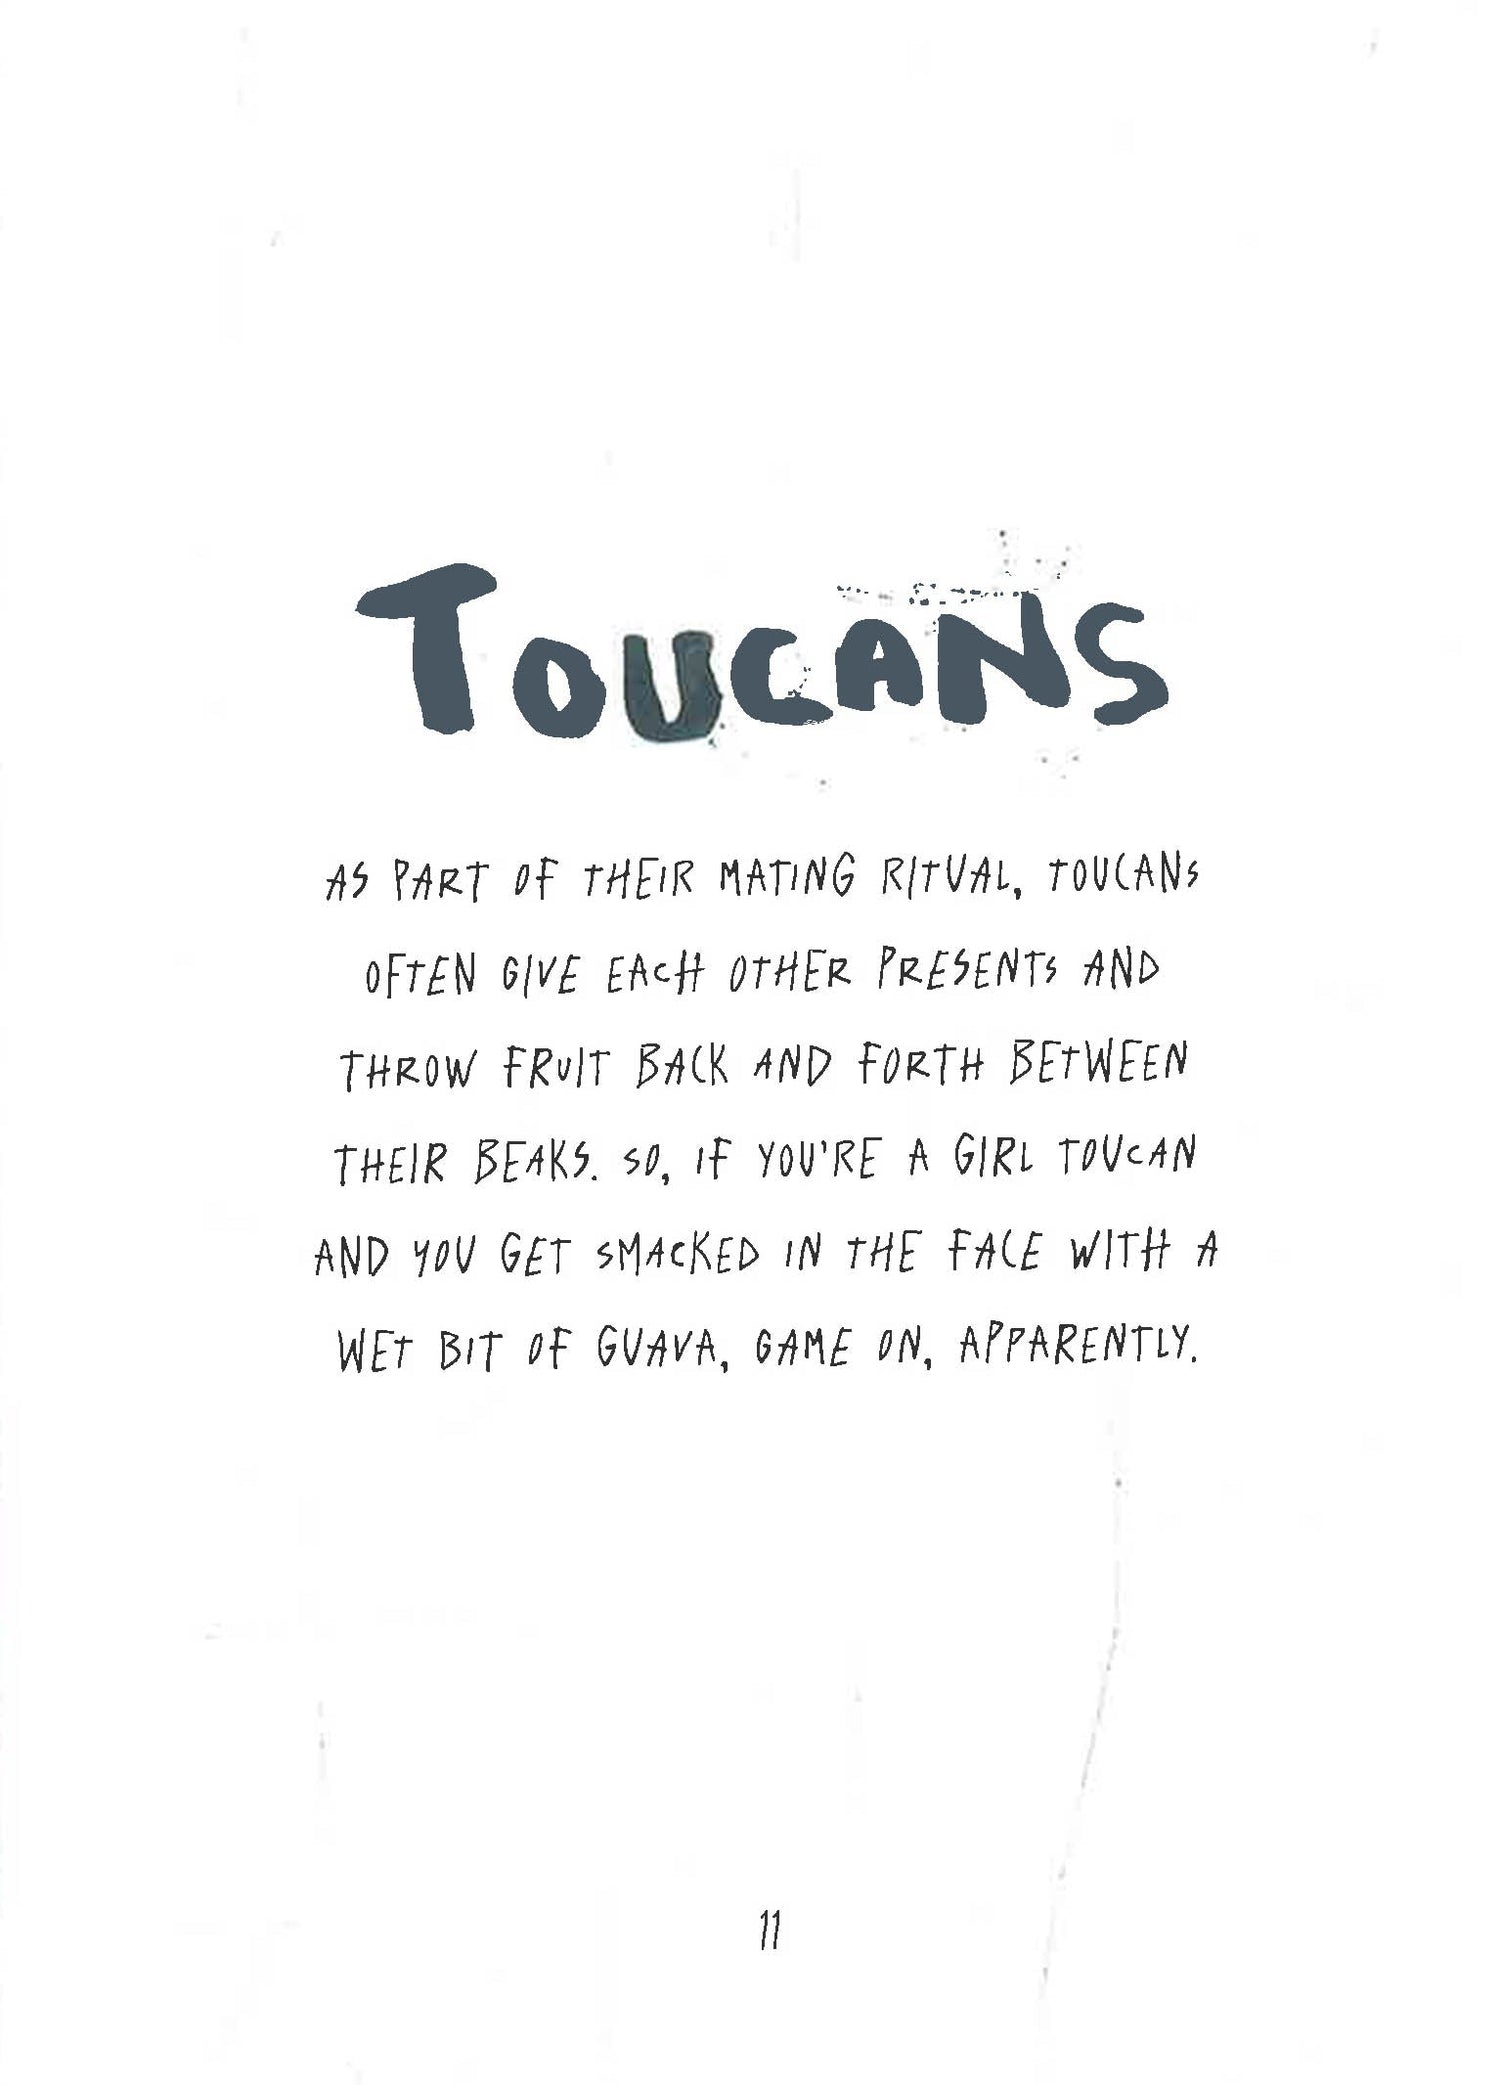 TOUCANS
AS PART OF THEIR MATING RITUAL, TOUCANS
OFTEN GIVE EACH OTHER PRESENTS AND
THROW FRUIT BACK AND FORTH BETWEEN
THEIR BEAKS. SO, IF YOU'RE A GIRL TOUCAN
AND YOU GET SMACKED IN THE FACE WITH A
WET BIT OF GUAVA, GAME ON, APPARENTLY.
11